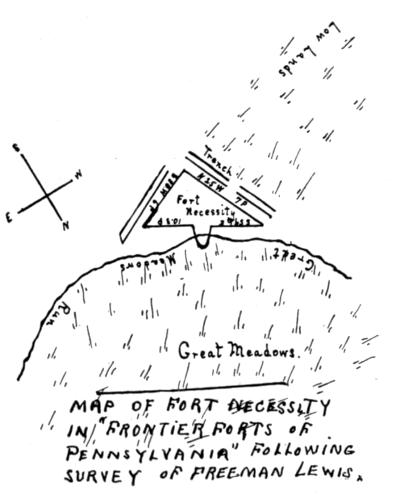 Low Lands
S
W
E
N
Trench
N 25 W 7P
Fort
Necessity
Great Meadows Run
Great Meadows.
MAP OF FORT NECESSITY
IN "FRONTIER FORTS OF
PENNSYLVANIA" FOLLOWING
SURVEY OF FREEMAN LEWIS.